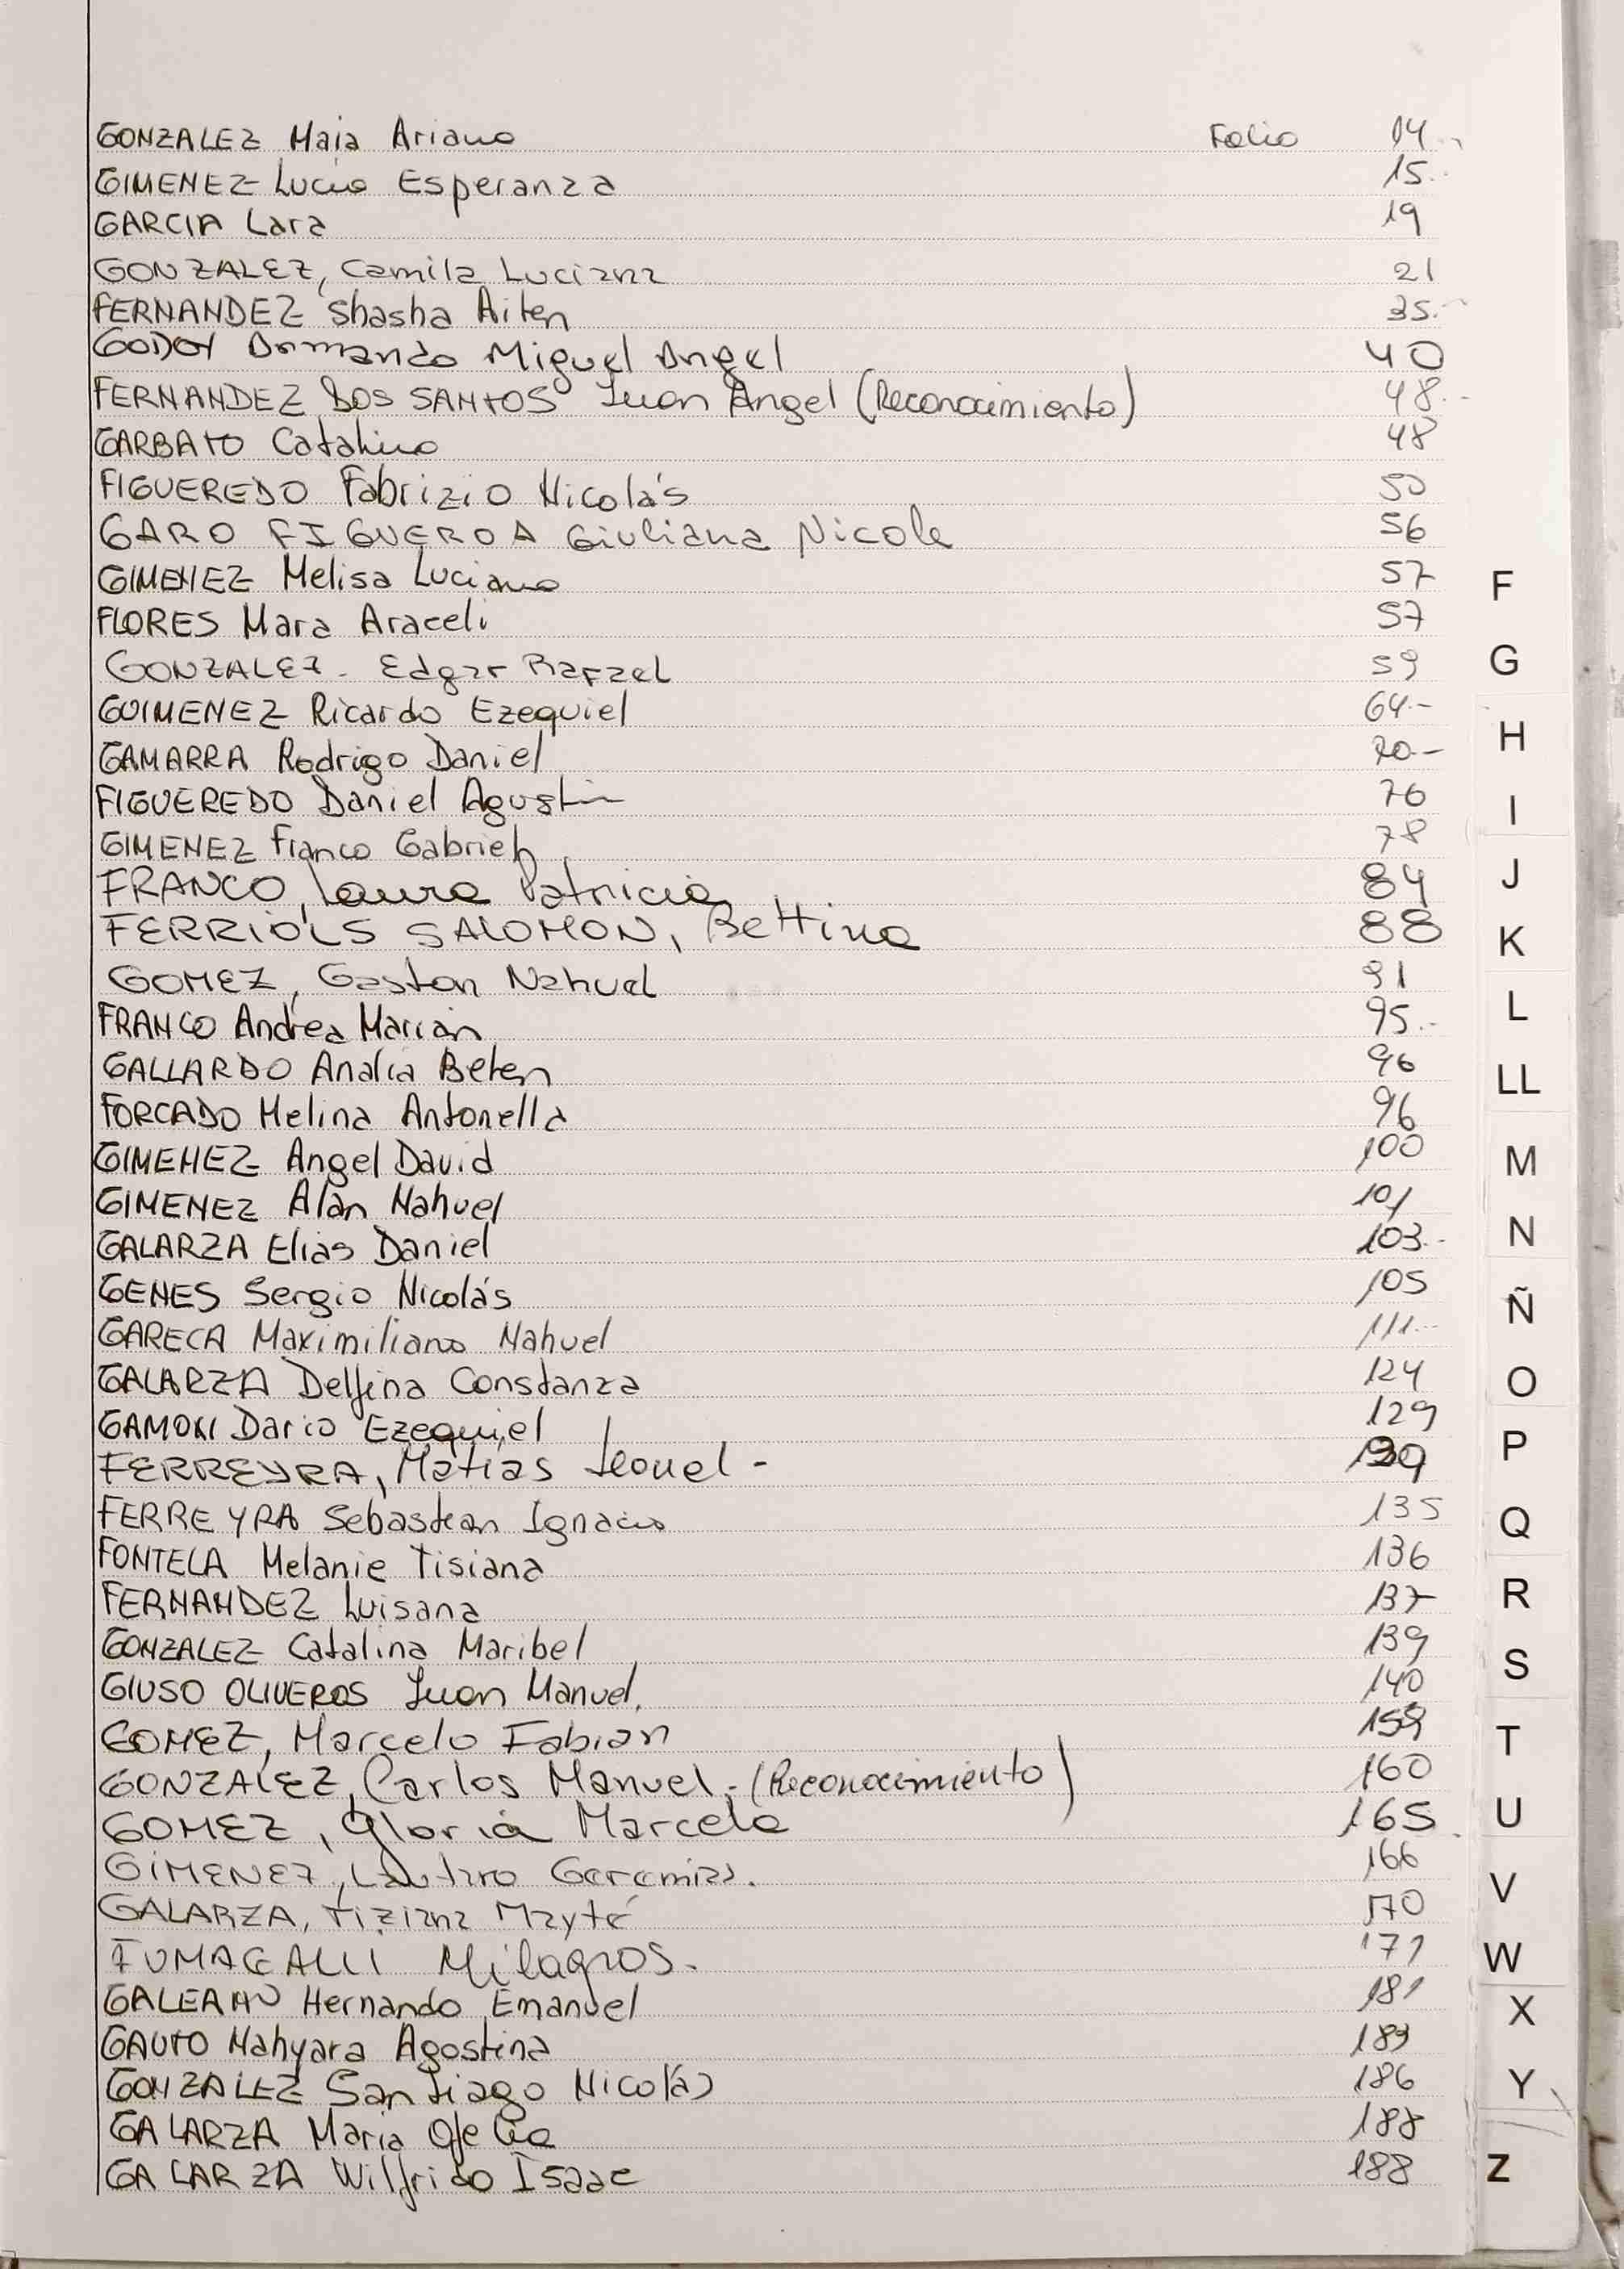 GONZALEZ Maia Ariana Folio 14
GIMENEZ Lucia Esperanza 15
GARCIA Lara 19
GONZALEZ, Camila Luciana 21
FERNANDEZ Shasha Ailen 35
GODOY Armando Miguel Angel 40
FERNANDEZ DOS SANTOS Juan Angel (Reconocimiento) 48
GARBATO Catalina 48
FIGUEREDO Fabrizio Nicolás 50
GARO FIGUEROA Giuliana Nicole 56
GIMENEZ Melisa Luciana 57
FLORES Mara Araceli 57
GONZALEZ Edgar Rafael 59
GUIMENEZ Ricardo Ezequiel 64
GAMARRA Rodrigo Daniel 70
FIGUEREDO Daniel Agustin 76
GIMENEZ Franco Gabriel 78
FRANCO, Laura Patricia 84
FERRIOLS SALOMON, Bettina 88
GOMEZ, Gaston Nahuel 91
FRANCO Andrea Marian 95
GALLARDO Analia Belen 96
FORCADO Melina Antonella 96
GIMENEZ Angel David 100
GIMENEZ Alan Nahuel 101
GALARZA Elias Daniel 103
GENES Sergio Nicolás 105
GARECA Maximiliano Nahuel 111
GALARZA Delfina Constanza 124
GAMONI Dario Ezequiel 129
FERREYRA, Matias Leonel -
FERREYRA Sebastian Ignacio 135
FONTELA Melanie Tisiana 136
FERNANDEZ Luisana 137
GONZALEZ Catalina Maribel 139
GIUSO OLIVEROS Juan Manuel. 140
GOMEZ, Marcelo Fabian
GONZALEZ, Carlos Manuel - (Reconocimiento) 160
GOMEZ, Gloria Marcela 165
GIMENEZ, Lautaro Geremias. 166
GALARZA, Tiziana Mayté 170
FUMAGALLI Milagros. 171
GALEANO Hernando Emanuel 181
GAUTO Nahyara Agostina 183
GONZALEZ Santiago Nicolás 186
GALARZA Maria Ofelia 188
GALARZA Wilfrido Isaac 188
F
G
H
I
J
K
L
LL
M
N
Ñ
O
P
Q
R
S
T
U
V
W
X
Y
Z